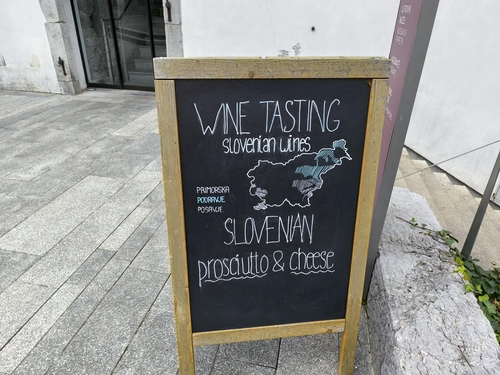 WINE TASTING
slovenian wines
PRIMORSKA
PODRAVJE
POSAVJE
SLOVENIAN
prosciutto & cheese